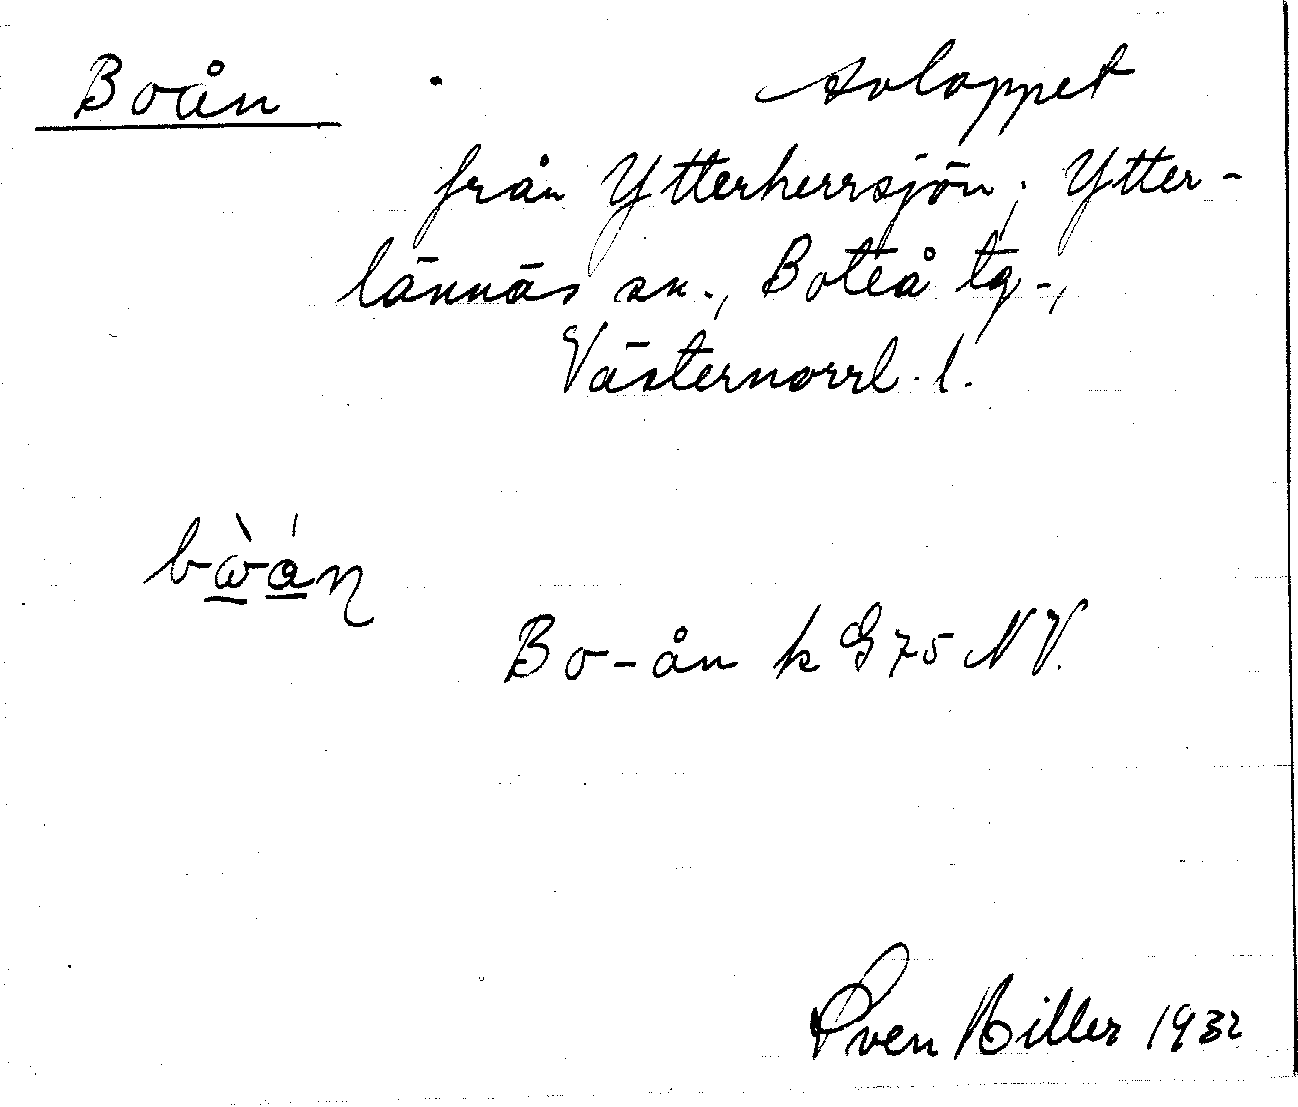 Boån
Avloppet
från Ytterherrsjön, Ytter-
lännäs sn., Boteå tg.,
Västernorrl. l.
bɷ̀án
Bo-ån k G 75 NV.
Sven Hiller 1932